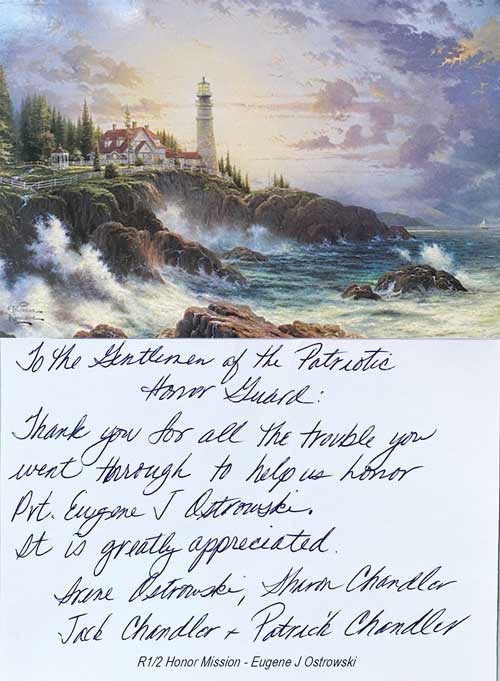 To the Gentlemen of the Patriotic
Honor Guard:
Thank you for all the trouble you
went through to help us honor
Pvt. Eugene J Ostrowski.
It is greatly appreciated.
Irene Ostrowski, Sharon Chandler
Jack Chandler + Patrick Chandler
R1/2 Honor Mission - Eugene J Ostrowski